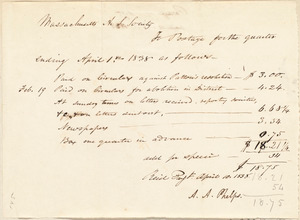 Massachusetts A. S. Society
To Postage for the quarter
ending April 1st 1838 as follows.
Paid on Circulars against Patton's resolution — $ 3.00.
Feb. 19 Paid on Circulars for abolition in District — 4.24.
At sundry times on letters received, reporting counties, 6.68¼
letters sent out, 3.54
Newspapers 0.75
Box one quarter in advance
$ 18.21¼
add for special 54
$ 18.75
Rec'd Pay't April 1838.
18.21
A. A. Phelps. 54
18.75